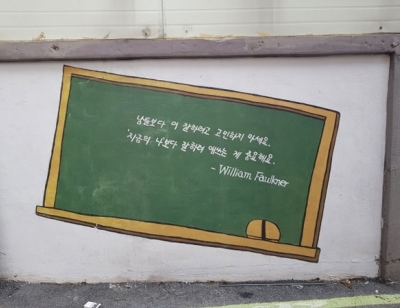 남들보다 더 잘하려고 고민하지 마세요.
'지금의 나'보다 잘하려 애쓰는 게 중요해요.
- William Faulkner